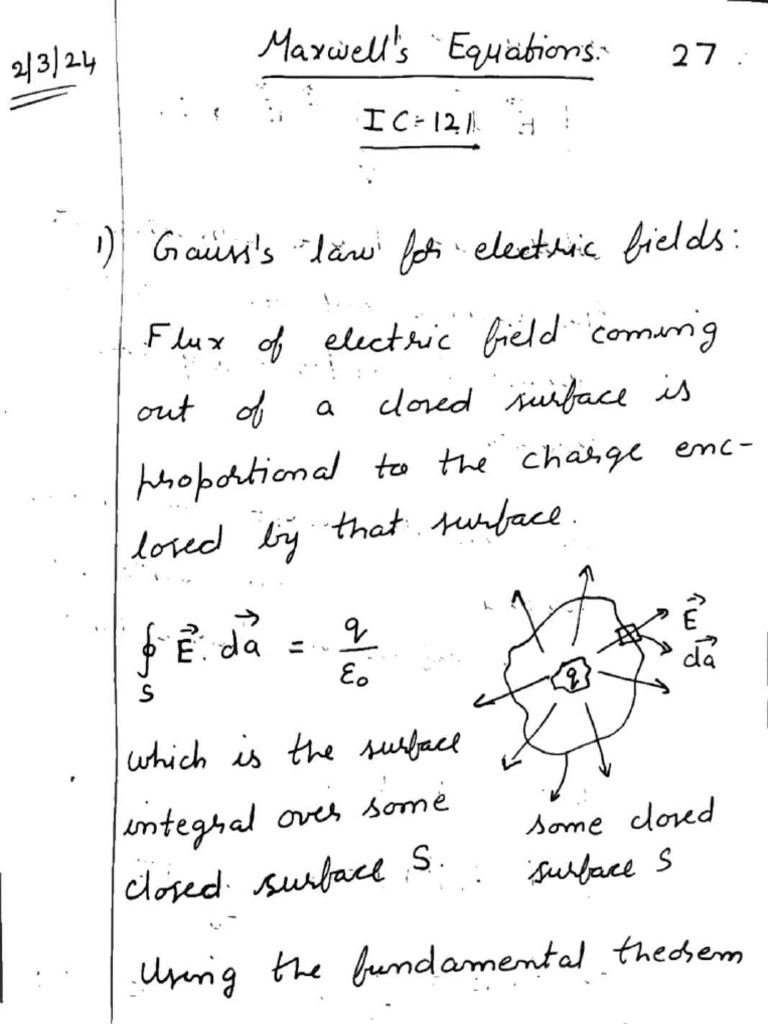 2/3/24
Maxwell's Equations.
27
IC-121
1) Gauss's law for electric fields:
Flux of electric field coming
out of a closed surface is
proportional to the charge enc-
losed by that surface.
∮_S E⃗. d⃗a = q/ε₀
E⃗
d⃗a
q
which is the surface
integral over some
closed surface S.
some closed
surface S
Using the fundamental theorem